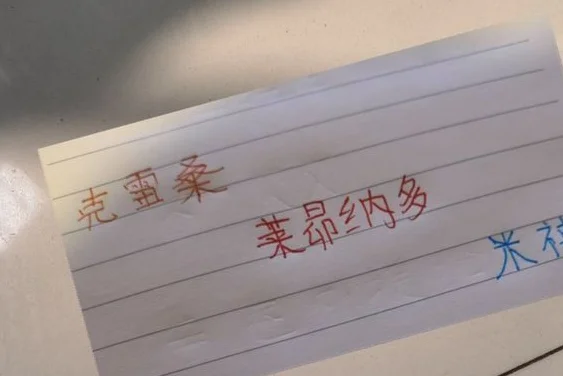 克雷桑
莱昂纳多
米